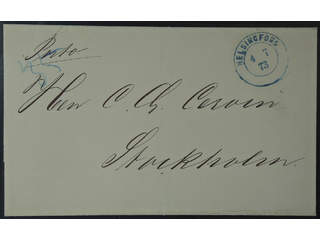 Porto
HELSINGFORS
4 7
73
Herr C. G. Cervin
Stockholm.